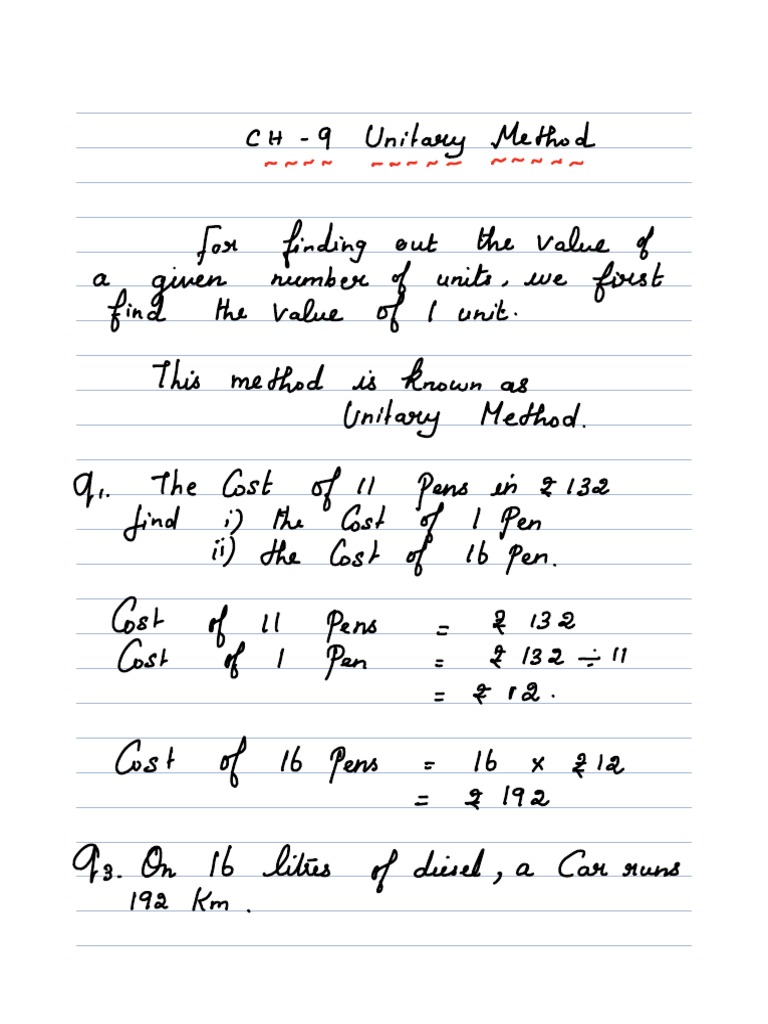 CH - 9 Unitary Method
For finding out the value of
a given number of units, we first
find the value of 1 unit.
This method is known as
Unitary Method.
Q1. The Cost of 11 Pens in ₹ 132
find i) the Cost of 1 Pen
ii) the Cost of 16 Pen.
Cost of 11 Pens = ₹ 132
Cost of 1 Pen = ₹ 132 ÷ 11
= ₹ 12.
Cost of 16 Pens = 16 × ₹ 12
= ₹ 192
Q3. On 16 litres of diesel, a Car runs
192 Km.